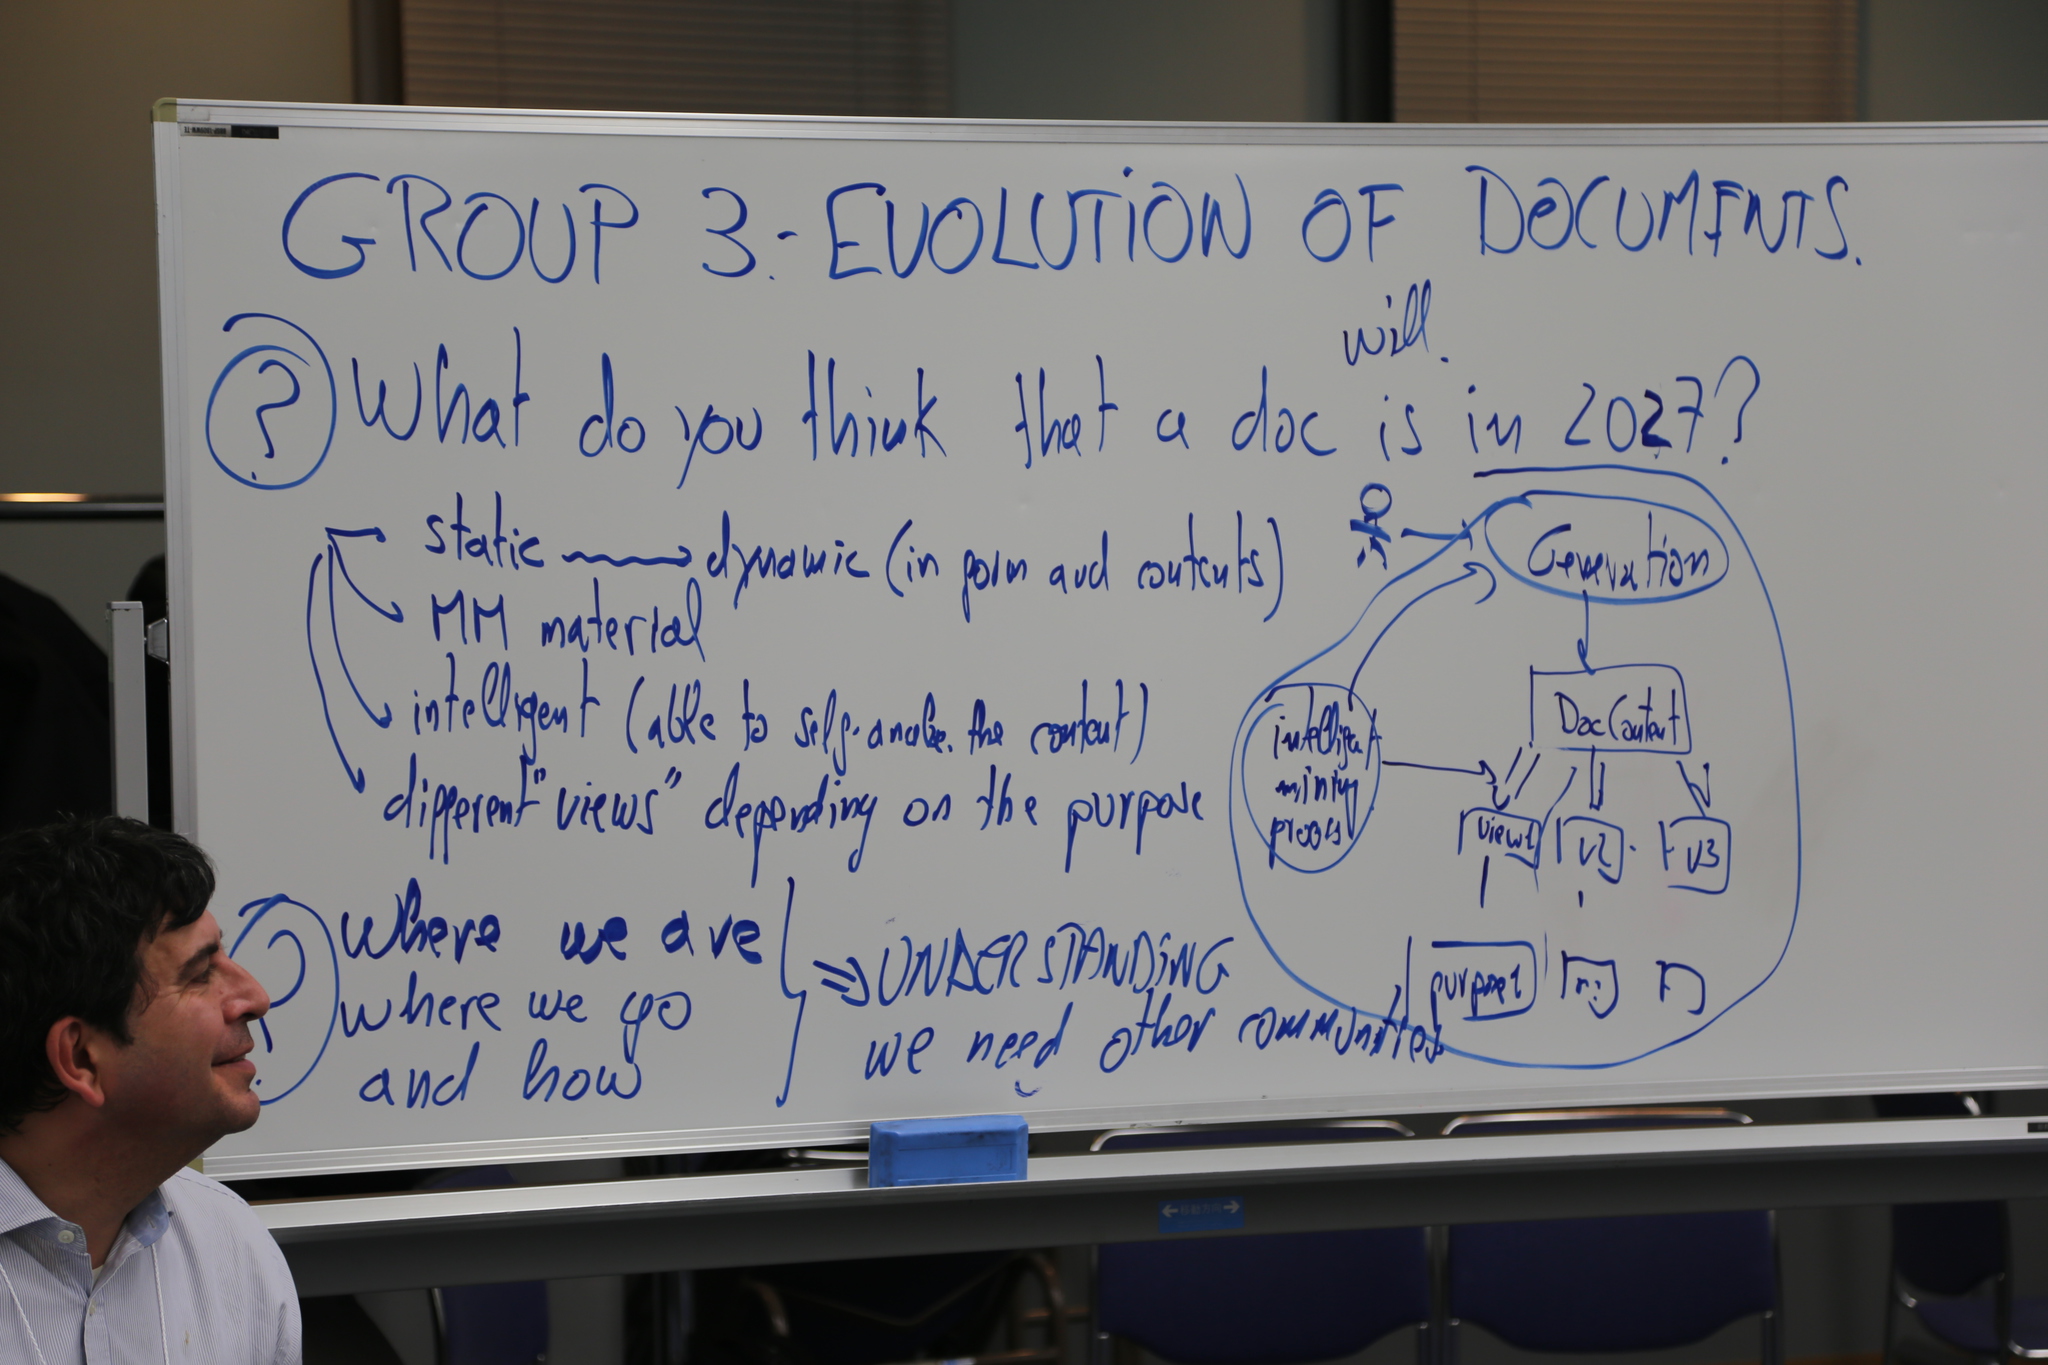 GROUP 3:- EVOLUTION OF DOCUMENTS.
will.
? What do you think that a doc is in 2027?
static → dynamic (in form and contents)
MM material
intelligent (able to self-analize the content)
different "views" depending on the purpose
? Where we are
where we go
and how
⇒ UNDERSTANDING
we need other communities
Generation
Doc Content
intelligent
mining
process
view1
v2
v3
purpose1
移動方向